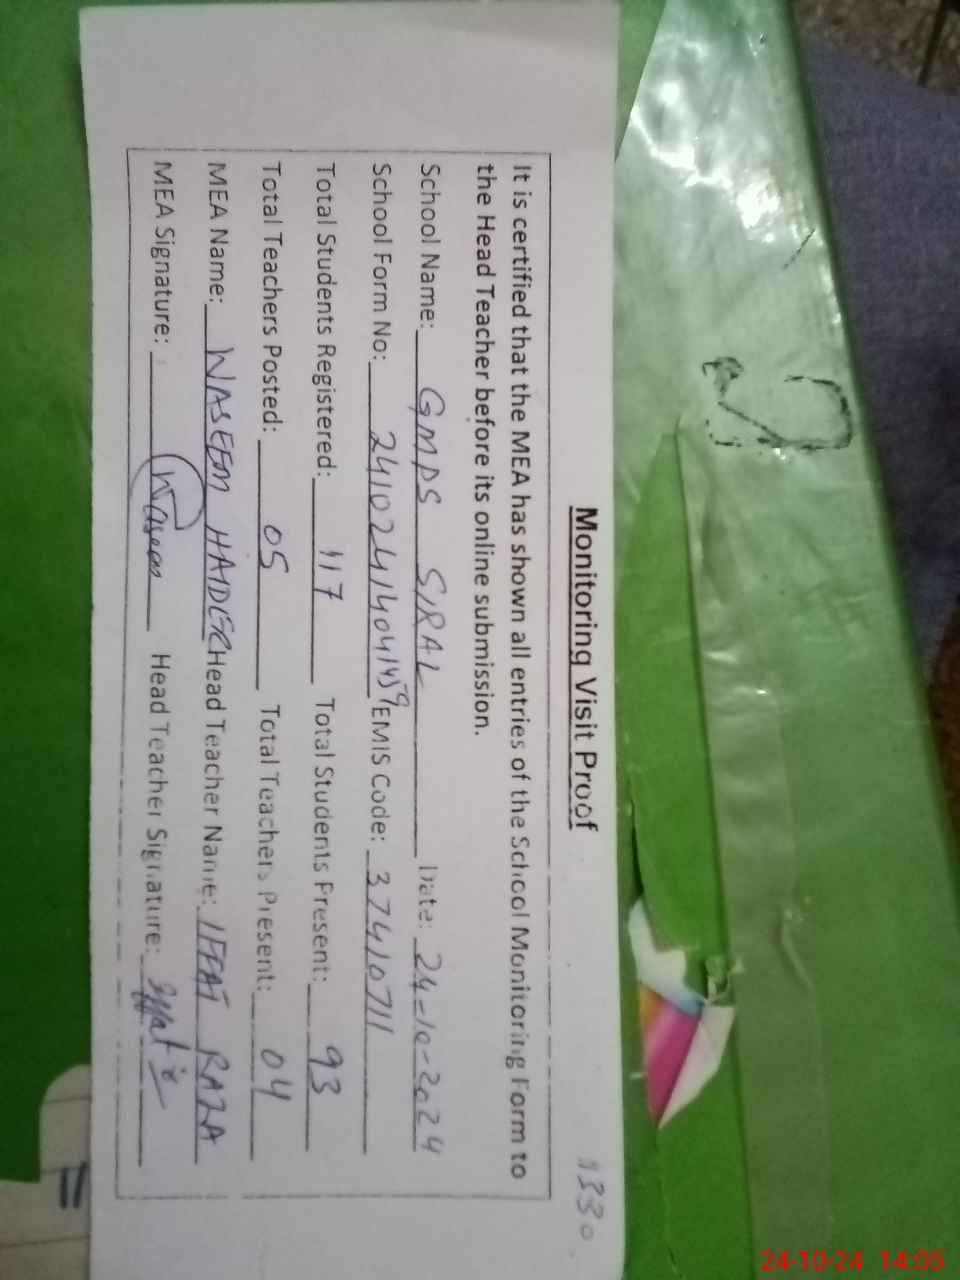 1330
Monitoring Visit Proof
It is certified that the MEA has shown all entries of the School Monitoring Form to
the Head Teacher before its online submission.
School Name: GMPS SIRAL Date: 24-10-2024
School Form No: EMIS Code: 37410711
Total Students Registered: 117 Total Students Present: 93
Total Teachers Posted: 05 Total Teachers Present: 04
MEA Name: WASEEM HAIDER Head Teacher Name: IFFAT RAZA
MEA Signature: Waseem Head Teacher Signature: Iffat
24-10-24 14:05